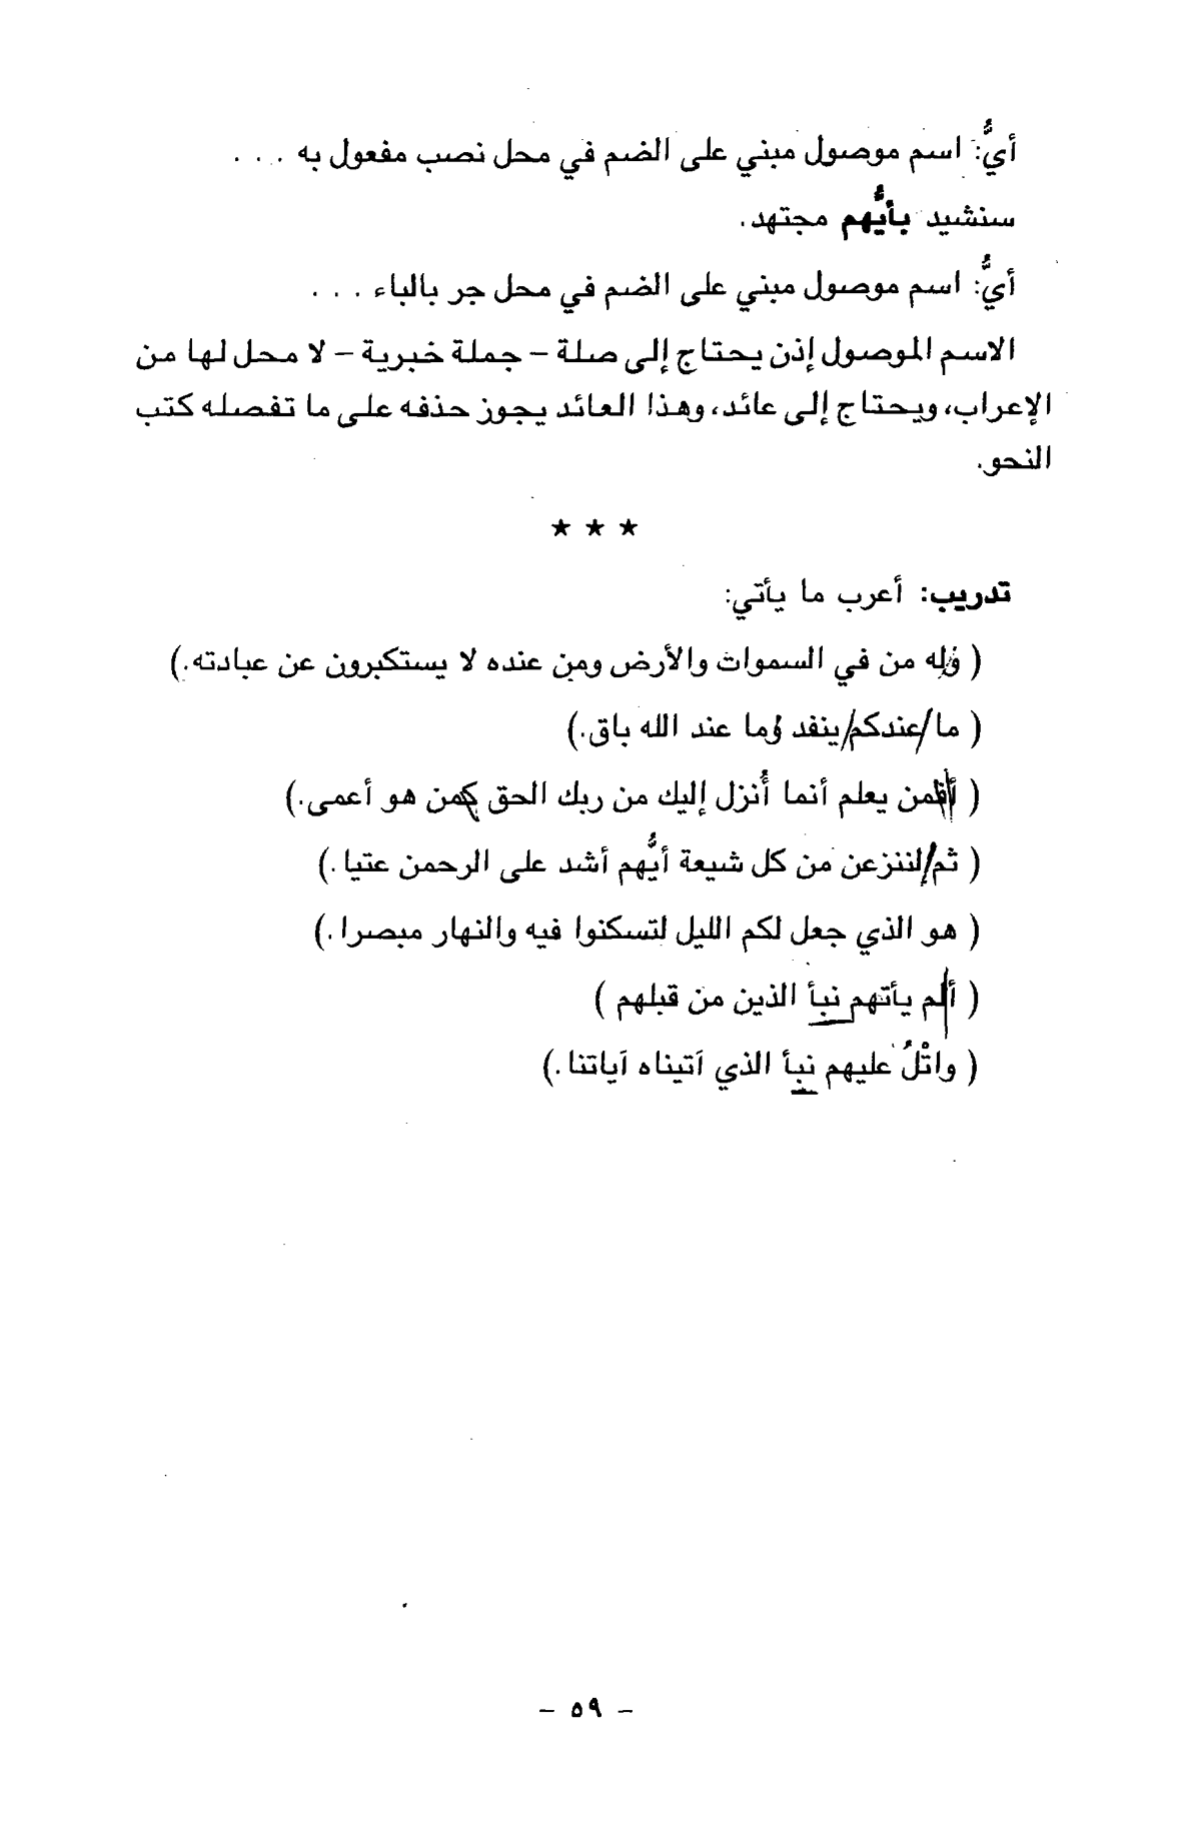 أيُّ: اسم موصول مبني على الضم في محل نصب مفعول به . . .
سنشيد بأيُّهم مجتهد.
أيُّ: اسم موصول مبني على الضم في محل جر بالباء . . .
الاسم الموصول إذن يحتاج إلى صلة – جملة خبرية – لا محل لها من
الإعراب، ويحتاج إلى عائد، وهذا العائد يجوز حذفه على ما تفصله كتب
النحو.
★ ★ ★
تدريب: أعرب ما يأتي:
( وله من في السموات والأرض ومن عنده لا يستكبرون عن عبادته.)
( ما عندكم ينفد وما عند الله باق.)
( أفمن يعلم أنما أُنزل إليك من ربك الحق كمن هو أعمى.)
( ثم لننزعن من كل شيعة أيُّهم أشد على الرحمن عتيا.)
( هو الذي جعل لكم الليل لتسكنوا فيه والنهار مبصرا.)
( ألم يأتهم نبأ الذين من قبلهم )
( واتْلُ عليهم نبأ الذي آتيناه آياتنا.)
– ٥٩ –